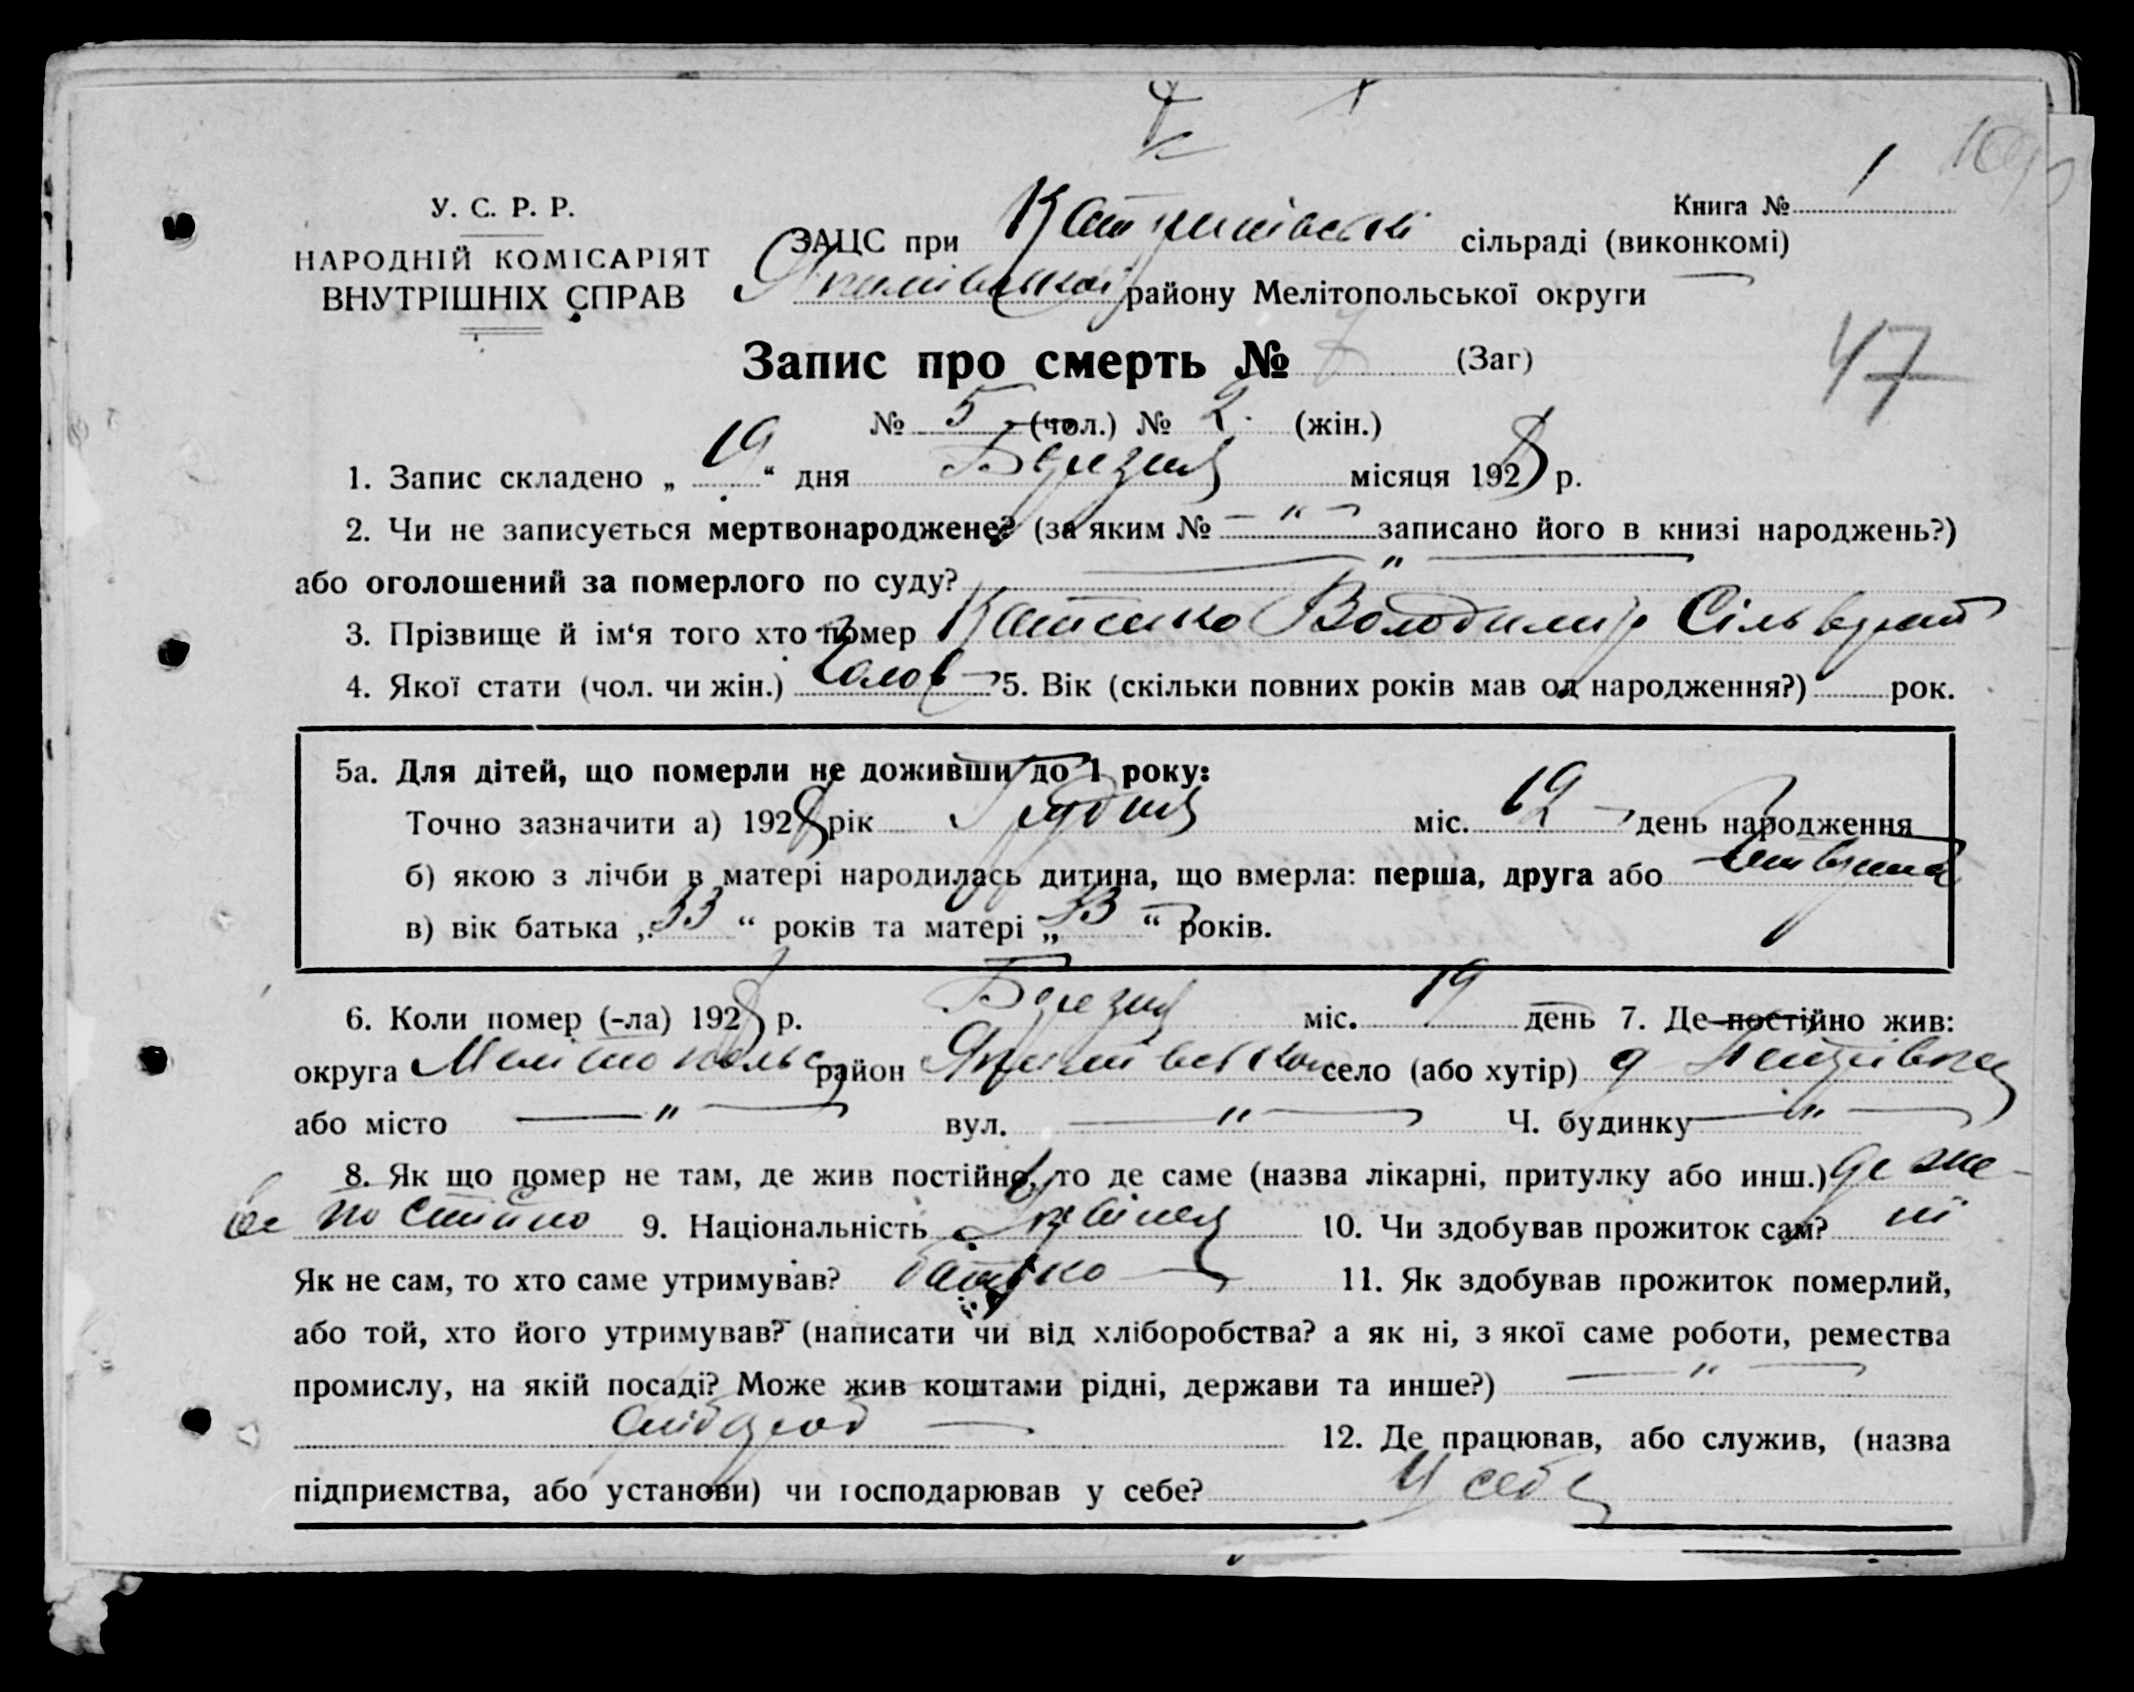 Книга № 1
У. С. Р. Р.
НАРОДНІЙ КОМІСАРІЯТ
ВНУТРІШНІХ СПРАВ
ЗАЦС при сільраді (виконкомі)
району Мелітопольської округи
47
Запис про смерть № 7 (Заг)
№ 5 (чол.) № 2. (жін.)
1. Запис складено „ 19 “ дня Березня місяця 1928 р.
2. Чи не записується мертвонароджене? (за яким № — " — записано його в книзі народжень?)
або оголошений за померлого по суду? — " —
3. Прізвище й ім‘я того хто помер Володимир
4. Якої стати (чол. чи жін.) Чолов 5. Вік (скільки повних років мав од народження?) рок.
5а. Для дітей, що померли не доживши до 1 року:
Точно зазначити а) 1928 рік Грудня міс. 19 день народження
б) якою з лічби в матері народилась дитина, що вмерла: перша, друга або
в) вік батька „ 33 “ років та матері „ 33 “ років.
6. Коли помер (-ла) 1928 р. Березня міс. 19 день 7. Де постійно жив:
округа Мелітопольс район село (або хутір)
або місто — " — вул. — " — Ч. будинку — " —
8. Як що помер не там, де жив постійно, то де саме (назва лікарні, притулку або инш.) де жи-
ве постійно 9. Національність 10. Чи здобував прожиток сам? ні
Як не сам, то хто саме утримував? батько 11. Як здобував прожиток померлий,
або той, хто його утримував? (написати чи від хліборобства? а як ні, з якої саме роботи, ремества
промислу, на якій посаді? Може жив коштами рідні, держави та инше?) — " —
хлібороб — 12. Де працював, або служив, (назва
підприємства, або установи) чи господарював у себе? У себе